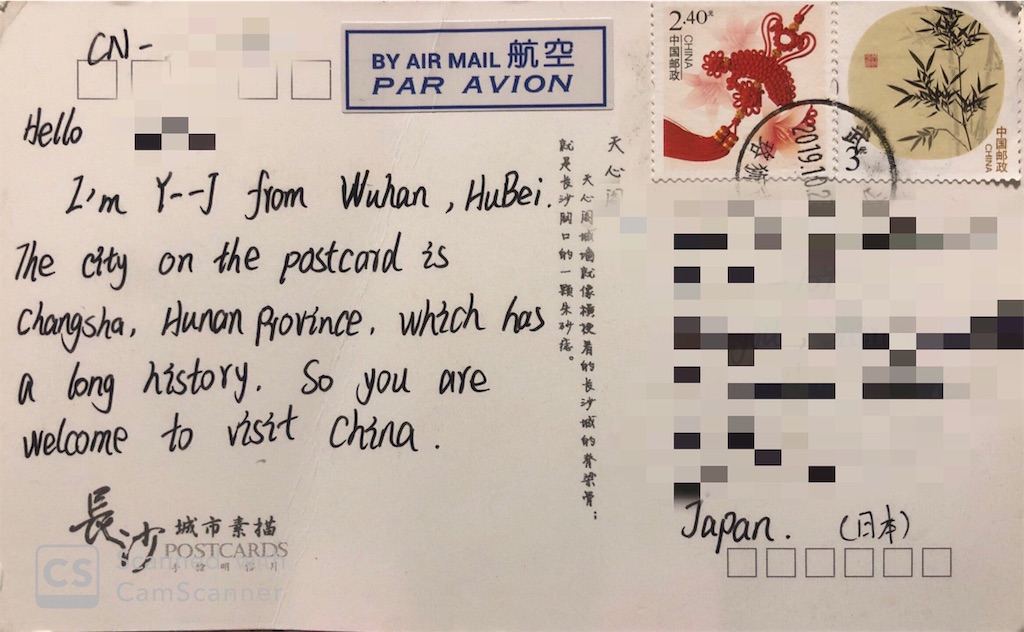 CN-
BY AIR MAIL 航空
PAR AVION
2.40元
中国邮政
CHINA
3
中国邮政
CHINA
2019.10.2
Hello
I'm Y--J from Wuhan, HuBei.
The city on the postcard is
Changsha, Hunan Province, which has
a long history. So you are
welcome to visit China.
天心阁
天心阁城墙就像横使着的长沙城的脊梁骨；
就是长沙胸口的一颗朱砂痣。
長沙 城市素描
POSTCARDS
手绘明信片
Japan. (日本)
CS Scanned with
CamScanner